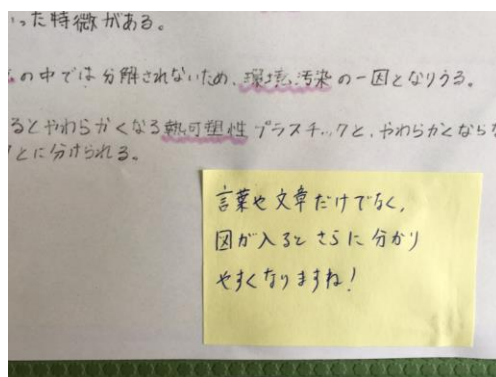 った特徴がある。
の中では分解されないため、環境汚染の一因となりうる。
るとやわらかくなる熱可塑性プラスチックと、やわらかくならな
クとに分けられる。
言葉や文章だけでなく、
図が入るとさらに分かり
やすくなりますね!